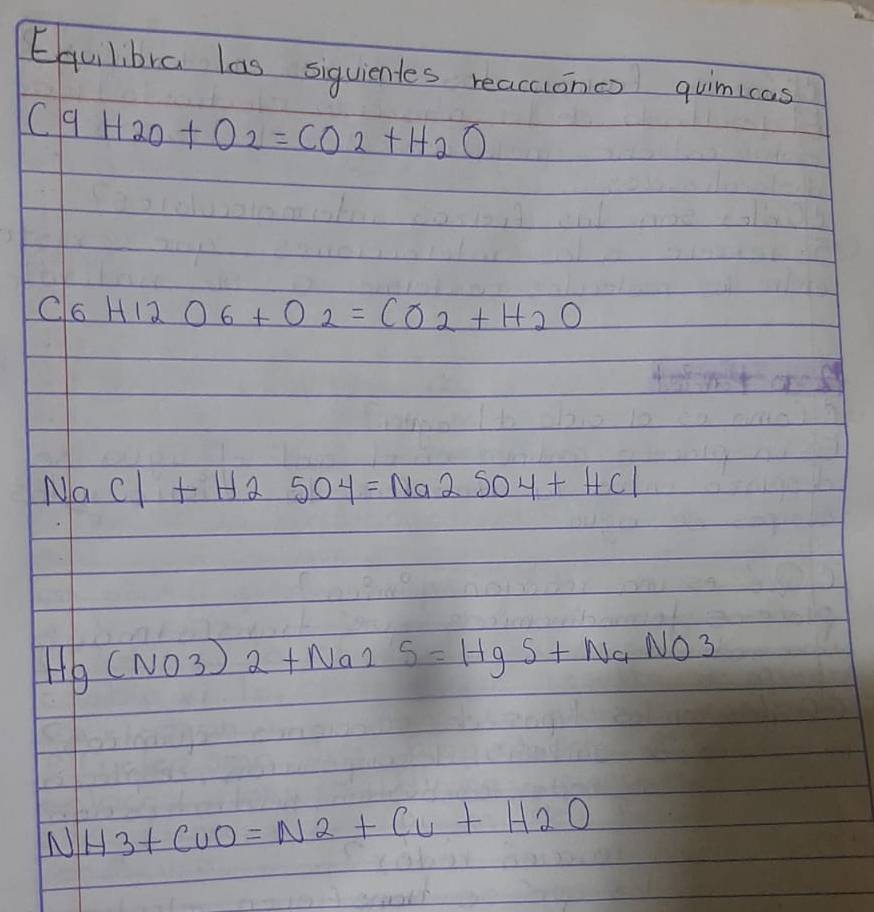 Equilibra las siguientes reacciónes químicas
C9 H20 + O2 = CO2 + H2O
C6 H12 O6 + O2 = CO2 + H2O
Na Cl + H2 SO4 = Na2 SO4 + HCl
Hg (NO3) 2 + Na2 S = Hg S + Na NO3
NH3 + CuO = N2 + Cu + H2O